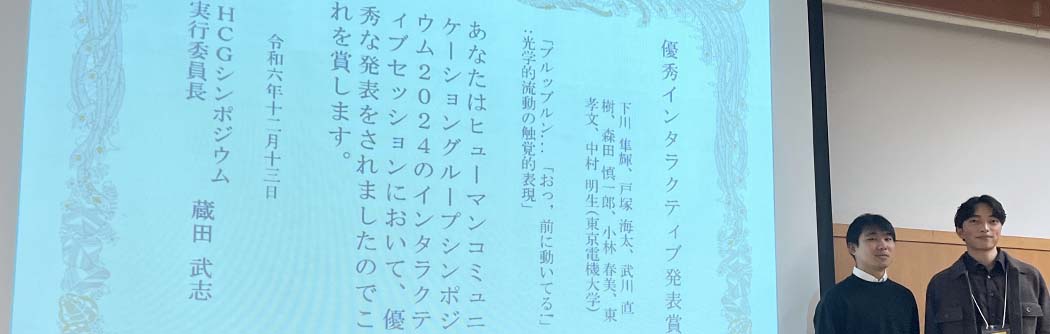 優秀インタラクティブ発表賞
下川 隼輝、戸塚 海太、武川 直
樹、森田 慎一郎、小林 春美、東
孝文、中村 明生(東京電機大学)
「ブルッブルン… 「おっ，前に動いてる！」
：光学的流動の触覚的表現」
あなたはヒューマンコミュニ
ケーショングループシンポジ
ウム2024のインタラクテ
ィブセッションにおいて、優
秀な発表をされましたのでこ
れを賞します。
令和六年十二月十三日
HCGシンポジウム
実行委員長　蔵田 武志